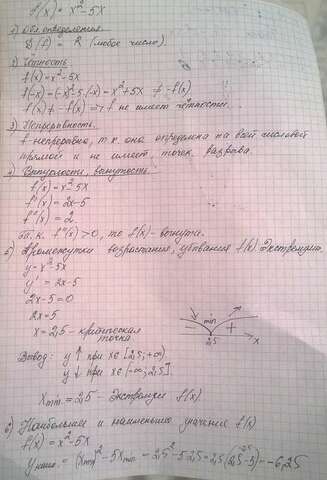 f(x) = x²-5x
1) Обл. определения.
D(f) = R (любое число).
2) Чётность
f(x) = x²-5x
f(-x) = (-x)²-5·(-x) = x²+5x ≠ -f(x)
f(x) ≠ -f(x) => f не имеет чётности.
3) Непрерывность.
f - непрерывна, т.к. она определена на всей числовой
прямой и не имеет точек разрыва.
4) Выпуклость, вогнутость.
f(x) = x²-5x
f'(x) = 2x-5
f''(x) = 2
т.к. f''(x) > 0, то f(x) - вогнута.
5) Промежутки возрастания, убывания f(x). Экстремум.
y = x²-5x
y' = 2x-5
2x-5=0
2x=5
x = 2,5 - критическая
точка
min
- +
2,5 x
Вывод: y ↑ при x∈[2,5;+∞)
y ↓ при x∈(-∞;2,5].
xmin = 2,5 - Экстремум f(x).
6) Наибольшее и наименьшее значение f(x)
f(x) = x²-5x
yнаим. = (xmin)²-5xmin = 2,5²-5·2,5 = 2,5(2,5-5) = -6,25